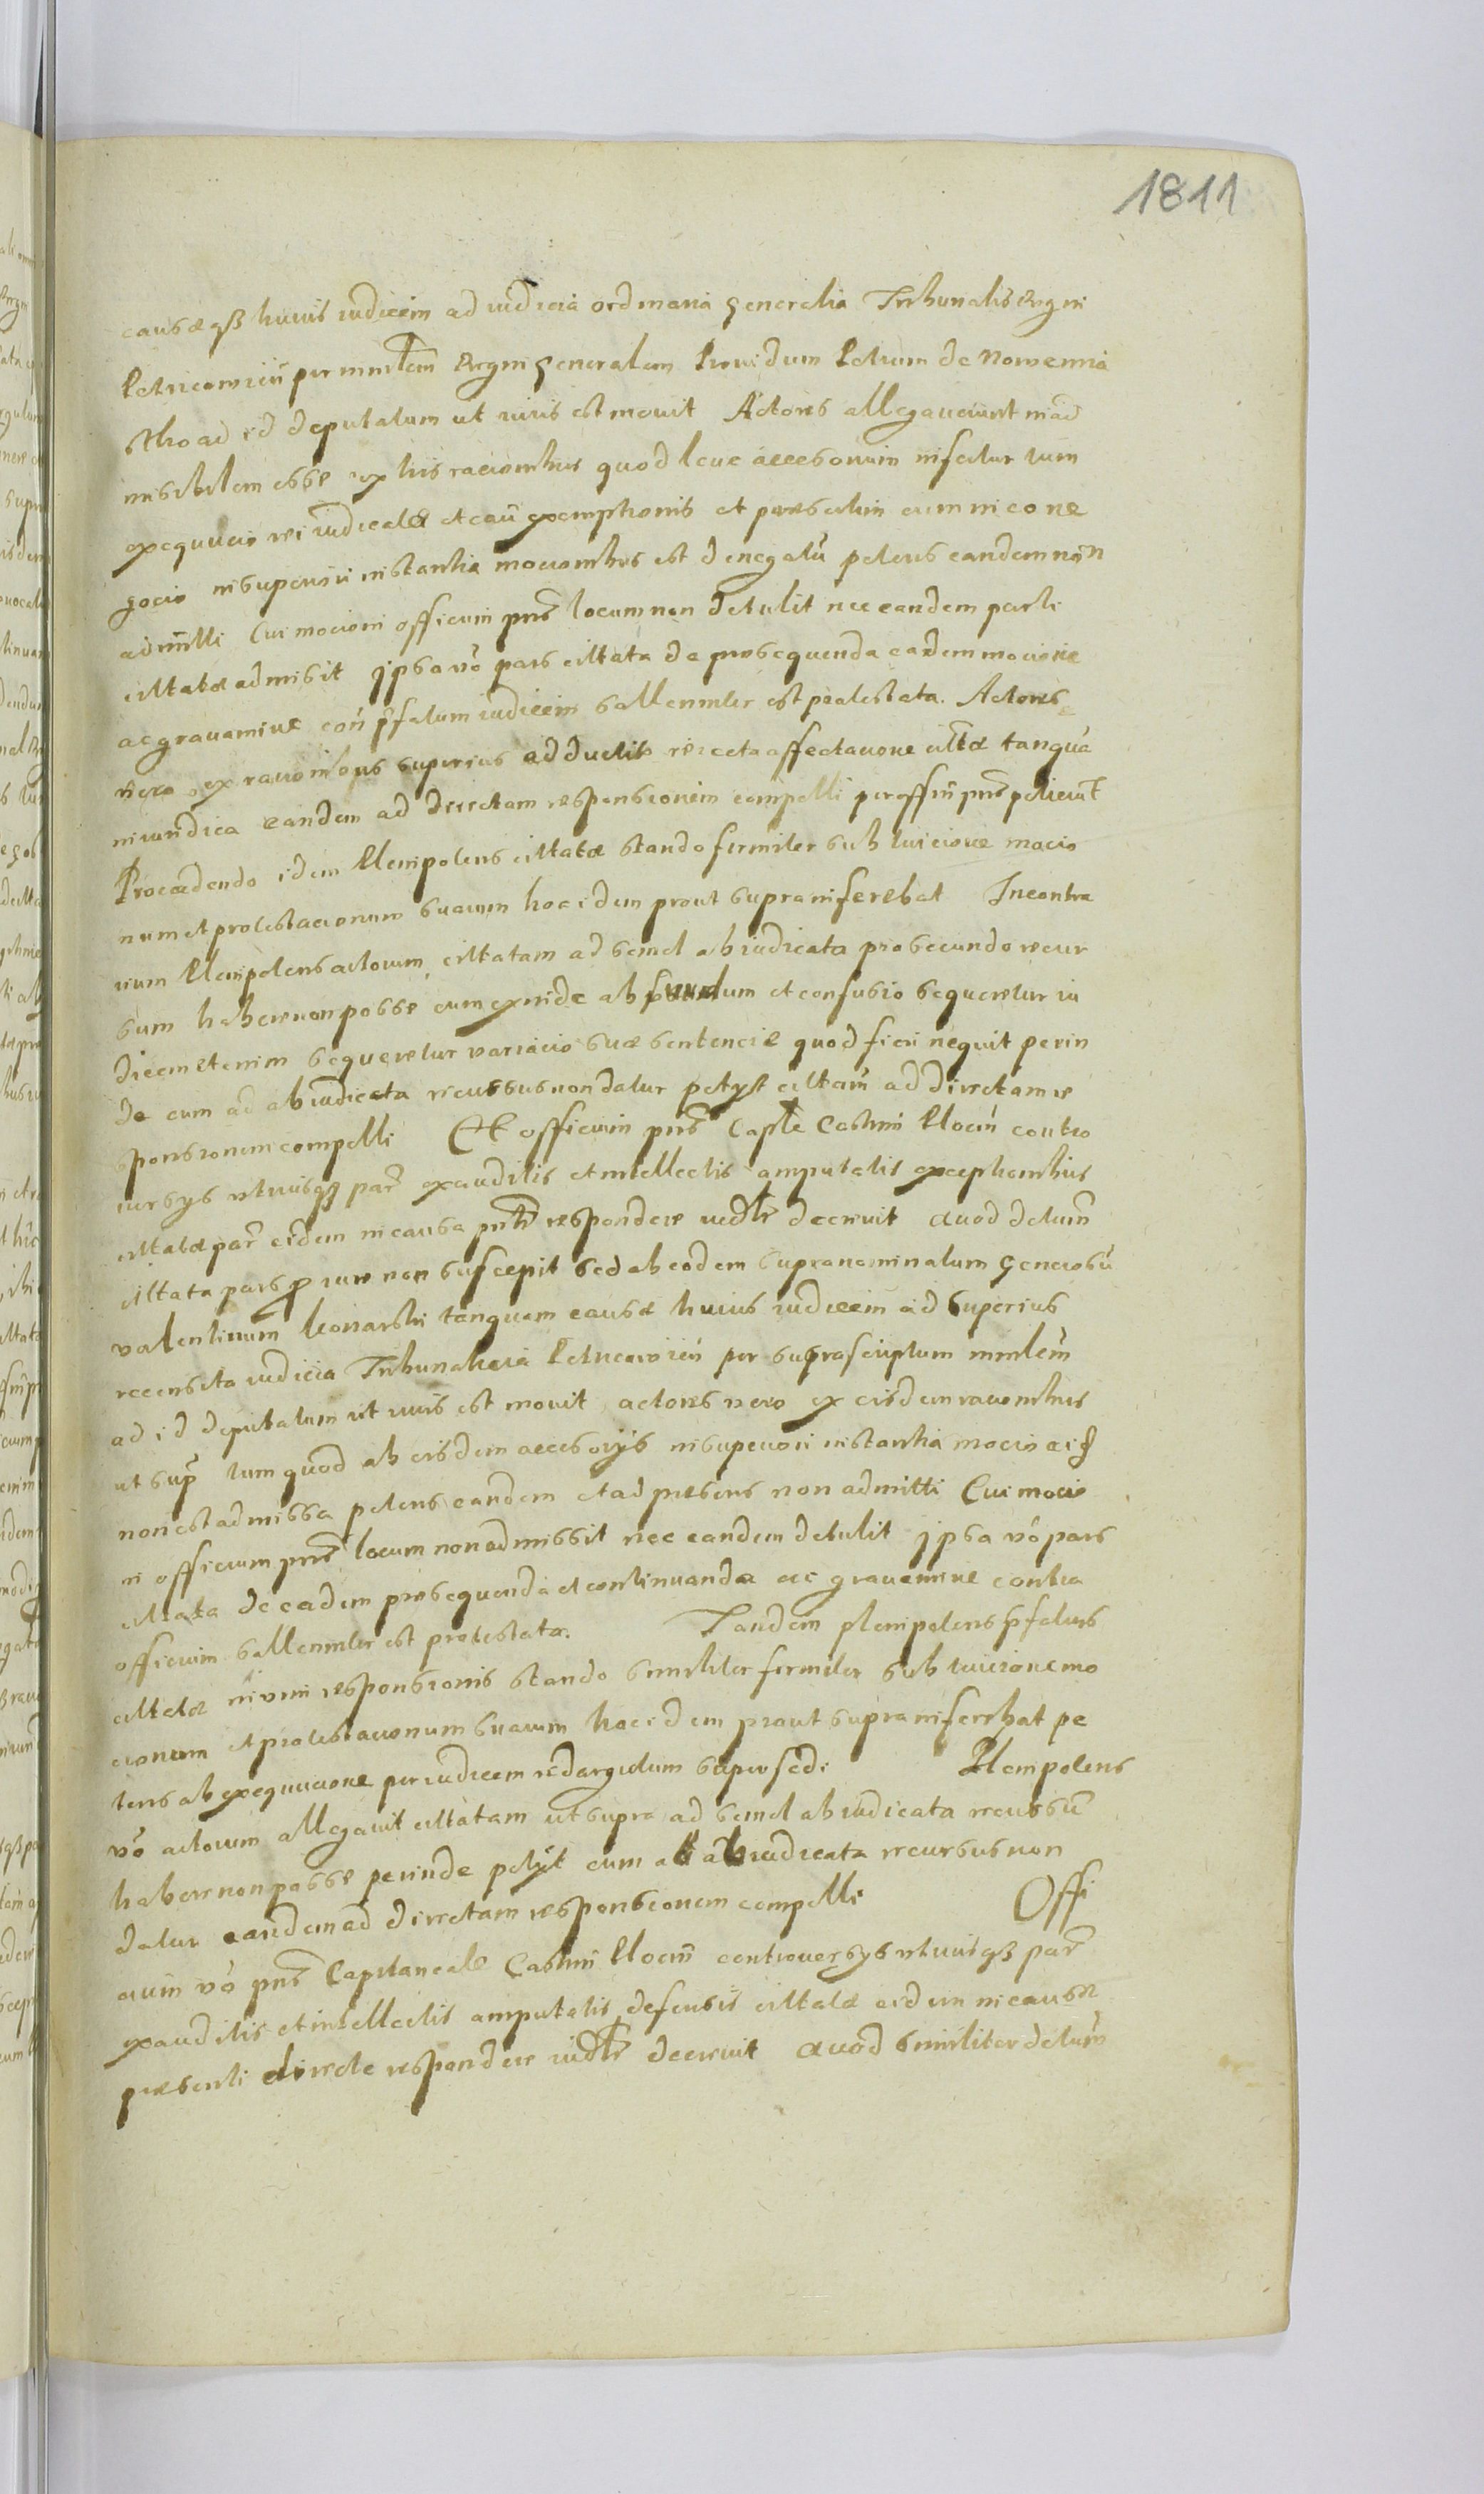 1811
causæqȝ huius iudicem ad iudicia ordinaria generalia Tribunalis Regni
Petricouień per mintlem Regni Generalem Prouidum Petrum de
ad id deputatum ut iuris est mouit Actores allegauerunt inad
missibilem esse ex his racionibus quod leue accesorium infertur tum
exequucio rei iudicatæ et cań exemptionis et præsertim cum in eo ne
gocio in superiori instantia mocionibus est denegatū petens eandem non
admitti Cui mocioni officium pns locum non detulit nec eandem parti
citatæ admisit ipsa vo pars citata de prosequenda eadem mocione
ac grauamine coń pfatum iudicem sallenniter est protestata. Actores
vero ex racionibus superius adductis reiecta affectacione cittæ tanquā
iniuridica eandem ad directam responsionem compelli per offm pns petierūt
Procædendo idem Plenipotens citatæ stando firmiter sub tuicione mocio
num et protestacionum suarum hoc idem prout supra inferebat Incontra
rium Plenipotens actorum citatam ad semel abiudicata pro secundo recur
sum habere non posse cum exinde absurdum et confusio sequeretur iu
dicem etenim sequeretur variacio suæ sentenciæ quod fieri nequit perin
de cum ad abiudicata recursus non datur petyt cittam ad directam re
sponsionem compelli Et officium pns Caple Castrń Plocen contro
uersys utriusqȝ par exauditis et intellectis amputatis excepcionibus
cittatæ par eidem in causa pnti respondere iudtr decreuit Quod detum
cittata pars p iure non suscepit sed ab eodem supranominatum Generosū
Valentinum tanquam causæ huius iudicem ad superius
recensita iudicia Tribunalicia Petricouień per suprascriptum mintlem
ad id deputatum ut iuris est mouit, actores vero ex eisdem racionibus
ut sup tum quod ab eisdem accesorys in superiori instantia mocio
non est admissa petens eandem et ad præsens non admitti Cui mocio
ni officium pns locum non admissit nec eandem detulit ipsa vo pars
citata de eadem prosequenda et continuanda ac grauamine contra
officium sallenniter est protestata. Tandem plenipotens pfatus
cittatæ in vim responsionis stando similiter firmiter sub tuicione mo
cionum et protestacionum suarum hoc idem prout supra inferebat pe
tens ab exequucione per iudicem redargutum supersedi Plenipotens
vo actorum allegauit cittatam ut supra ad semel abiudicata recursum
habere non posse perinde petyt cum ad abiudicata recursus non
datur eandem ad directam responsionem compelli Offi
cium vo pns Capitaneale Castrń Plocen controuersys utriusqȝ par
exauditis et intellectis amputatis defensis cittatæ eidem in causa
præsenti directe respondere iudtr decreuit Quod similiter detum